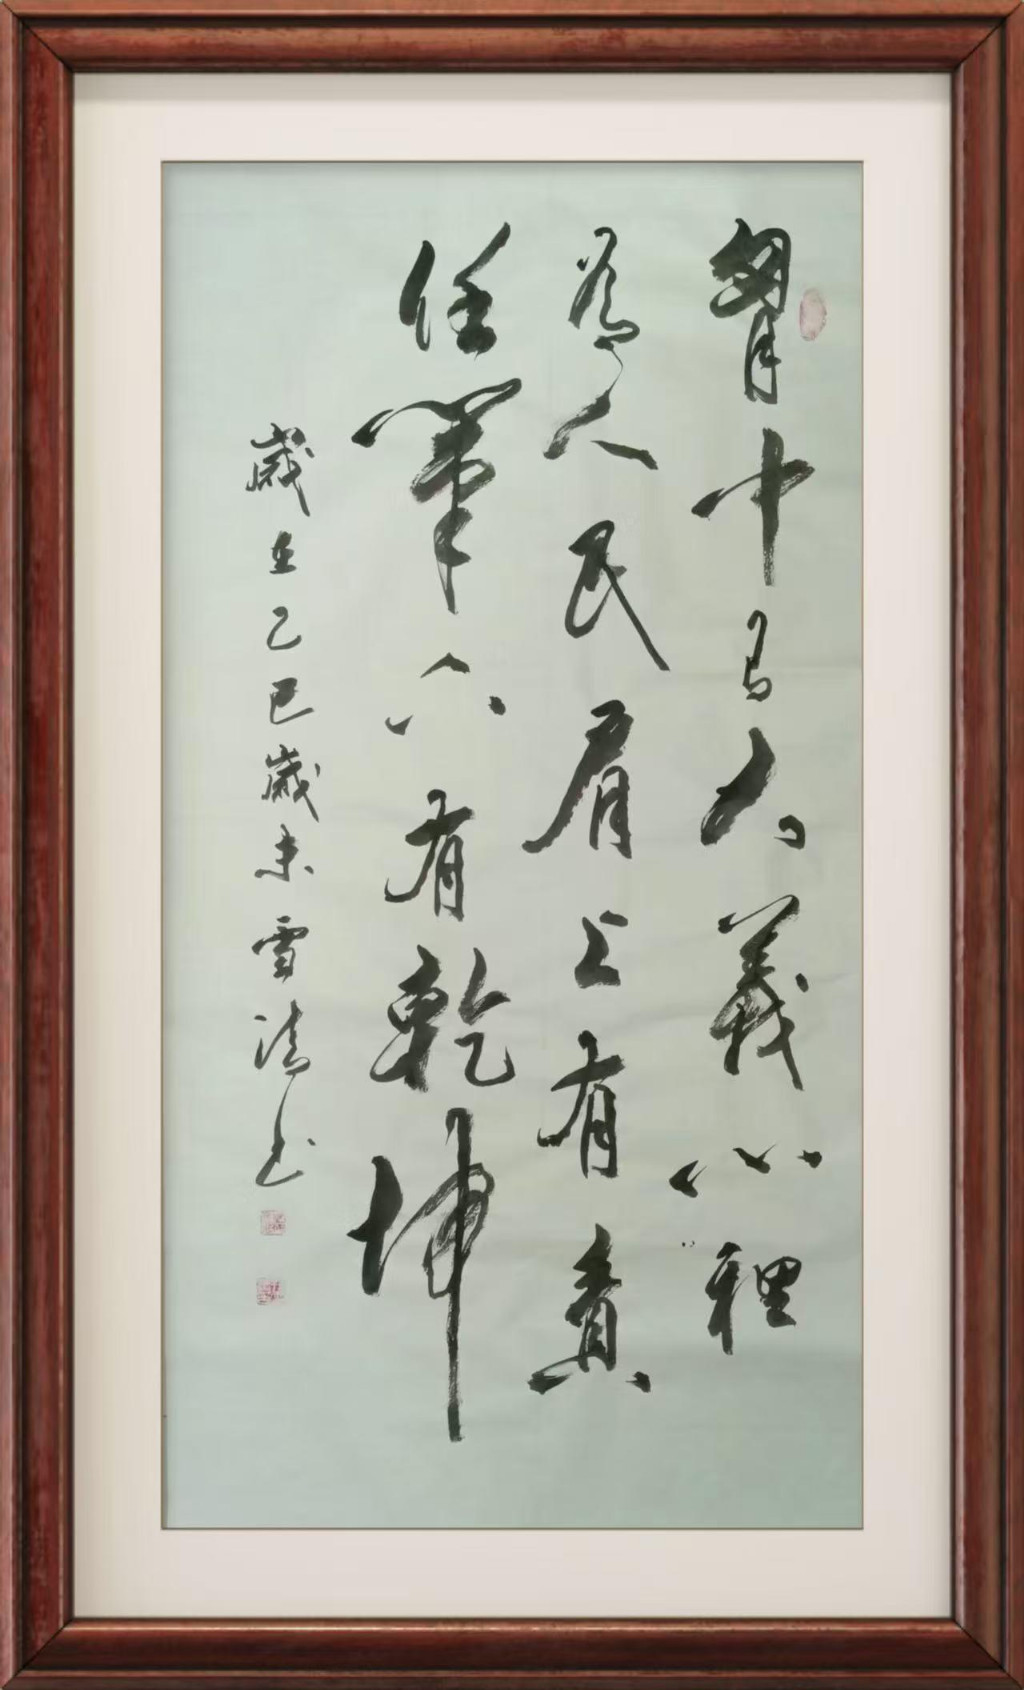 胷中有大義心裡
為人民肩上有責
任筆下有乾坤
歲在乙巳歲末雪清书